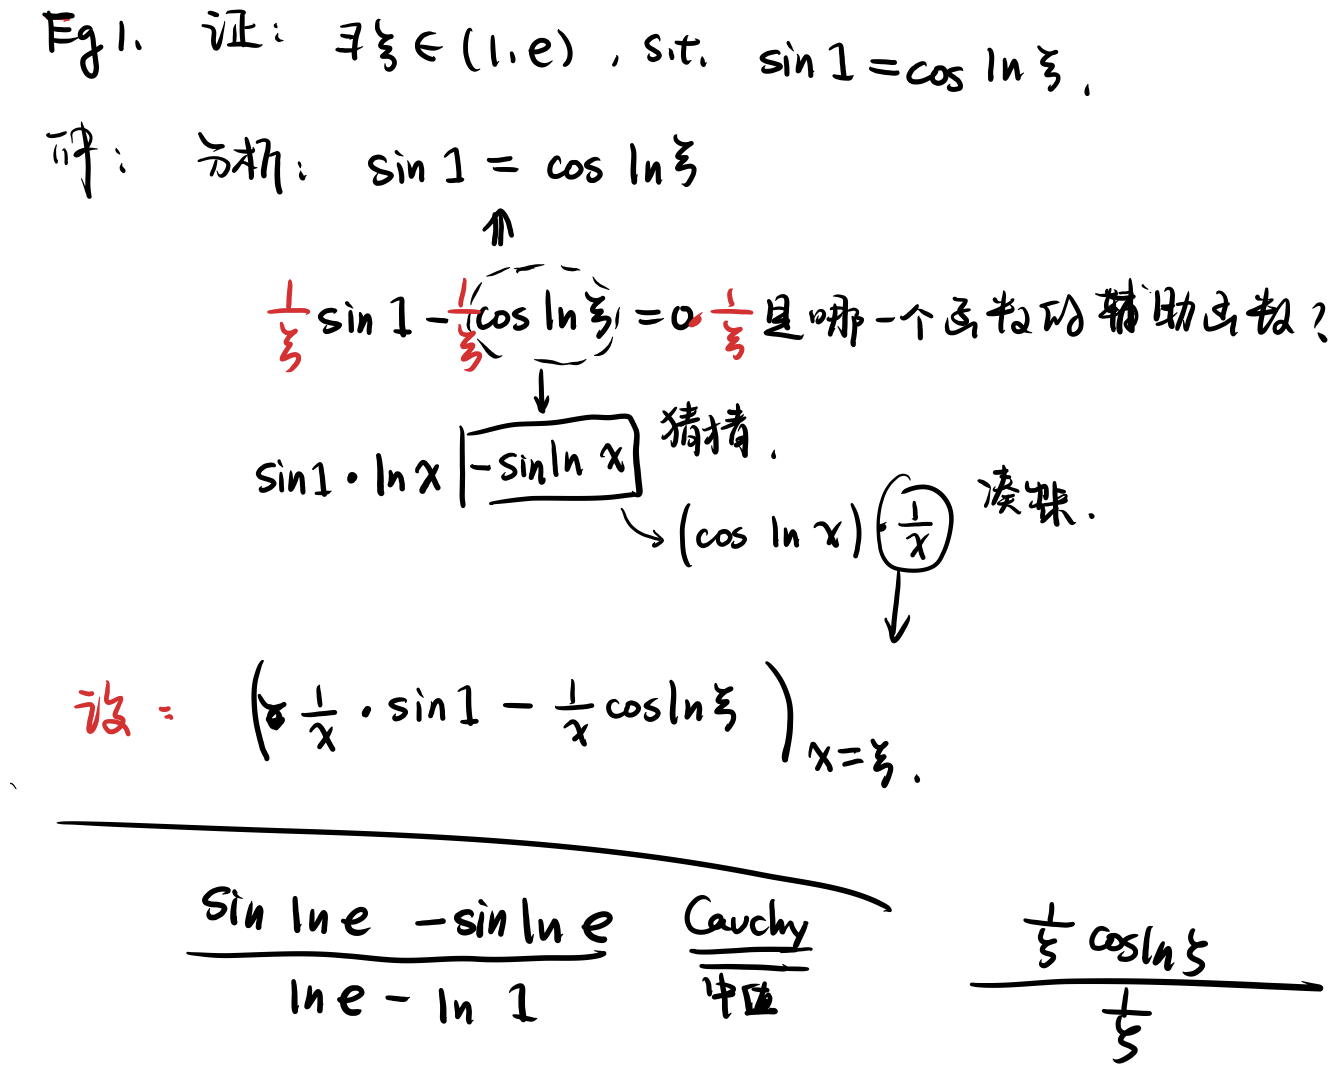 Eg 1. 证: ∃ξ ∈ (1, e), s.t. sin 1 = cos ln ξ.
解: 分析: sin 1 = cos ln ξ
⇑
1/ξ sin 1 − 1/ξ cos ln ξ = 0 1/ξ 是哪一个函数的辅助函数?
↓
sin 1 · ln x − sin ln x 猜猜.
→ (cos ln x) · 1/x 凑
↓
设: ( 1/x · sin 1 − 1/x cos ln ξ ) x = ξ.
(sin ln e − sin ln e)/(ln e − ln 1) Cauchy 中值 (1/ξ cos ln ξ)/(1/ξ)